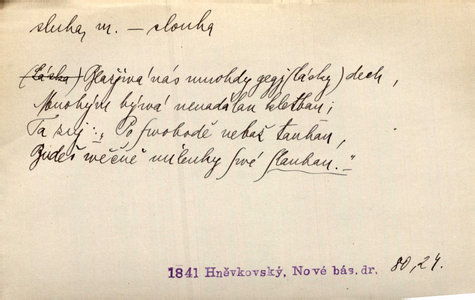 sluha, m. – slouha
(Láska) Plašívá nás mnohdy gegj (lásky) dech,
Mnohým bývá nenadálau kletbau;
Ta zněj: „Po swobodě nebaž tauhau,
Budeš wěčně milenky swé slauhau.“
1841 Hněvkovský, Nové bás. dr. 80,24.